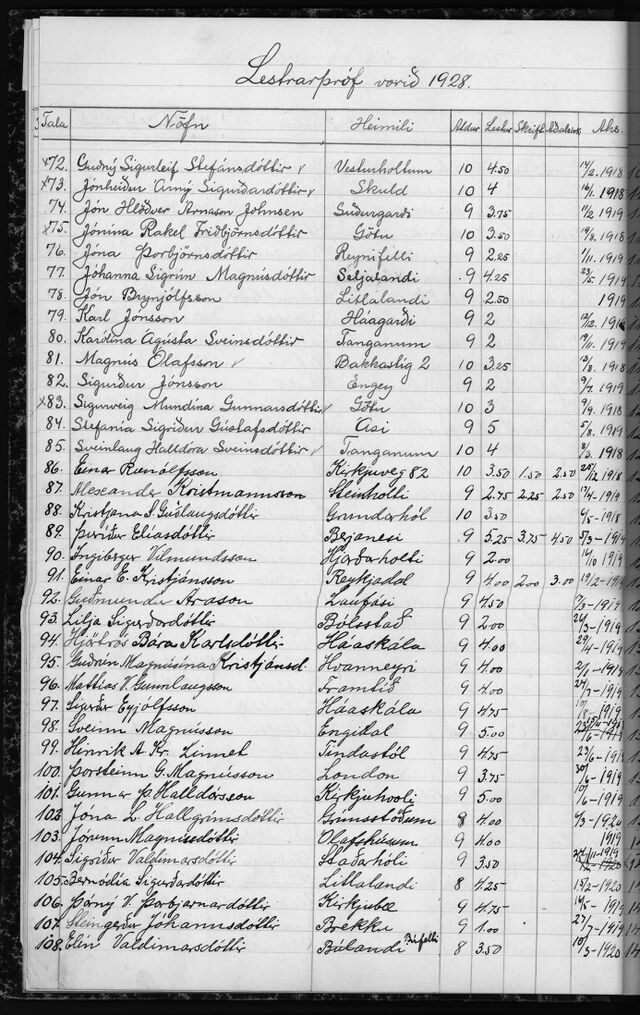 Lestrarpróf vorið 1928.
Tala Nöfn Heimili Aldur Lestur Skrift Aths.
x72. Guðný Sigurleif Stefánsdóttir v Vesturholtum 10 4.50 /2. 1918
x73. Jónheiður Árný Sigurðardóttir v Skuld 10 4 /1. 1918
74. Jón Hlöðver Árnason Johnsen Suðurgarði 9 3.75 /2 1919
x75. Jónína Rakel Friðbjörnsdóttir Götu 10 3.50 19/8. 1918
76. Jóna Þorbjörnsdóttir Reynifelli 9 2.25 1/11. 1919
77. Jóhanna Sigrún Magnúsdóttir Seljalandi 9 4.25 23/5. 1919
78. Jón Brynjólfsson Litlalandi 9 2.50 1919
79. Karl Jónsson Háagarði 9 2 /12.
80. Karólína Ágústa Sveinsdóttir Tanganum 9 2 19/11. 1919
81. Magnús Ólafsson v Bakkastíg 2 10 3.25 13/8. 1918
82. Sigurður Jónsson Engey 9 2 9/7. 1919
x83. Sigurveig Mundína Gunnarsdóttir v Götu 10 3 9/9. 1918
84. Stefanía Sigríður Gústafsdóttir Ási 9 5 5/8. 1919
85. Sveinlaug Halldóra Sveinsdóttir v Tanganum 10 4 /3. 1918
86. Einar Runólfsson Kirkjuveg 82 10 3.50 1.50 2.50 /2 1918
87. Alexander Kristmannsson Steinholti 9 2.75 2.25 2.50 /4-1919
88. Kristjana S Guðlaugsdóttir Grundarhól 10 3.50 /5-1918
89. Þuríður Elíasdóttir Berjanesi 9 5.25 3.75 4.50 5/3-1919
90. Ingiberger Vilmundsson Hjarðarholti 9 2.00 /10 1919
91. Einar E. Kristjánsson Reykjadal 9 4.00 2.00 3.00 19/2-1919
92. Guðmundur Arason Laufási 9 4.50 7/3-1919
93. Lilja Sigurðardóttir Bólsstað 9 2.00 /3-1919
94. Hjörtrós Bára Karlsdóttir Háaskála 9 4.00 29/4-1919
95. Guðrún Magnúsína Kristjánsd. Hvanneyri 9 4.00 -1919
96. Mattías V. Gunnlaugsson Framtíð 9 4.00 /7-1919
97. Sigurður Eyjólfsson Háaskála 9 4.75 10/8-1919
98. Sveinn Magnússon Engidal 9 5.00 /6-1919
99. Hinrik A. Kr. Linnet Tindastól 9 4.75 23/6-1919
100. Þorsteinn G. Magnússon London 9 3.75 30/6-1919
101. Gunnar Þ Halldórsson Kirkjuhvoli 9 5.00 10/6-1919
102. Jóna L. Hallgrímsdóttir Grímsstöðum 8 4.00 /3-1920
103. Jórunn Magnúsdóttir Ólafshúsum 9 4.00 1919
104. Sigríður Valdimarsdóttir Staðarhóli 9 3.50 /11-1919
105. Bernódía Sigurðardóttir Litlalandi 8 4.25 15/2-1920
106. Þórný V. Þorbjarnardóttir Kirkjubæ 9 4.75 /5-1919
107. Steingerður Jóhannsdóttir Brekku 9 1.00 27/7-1919
108. Elín Valdimarsdóttir Búlandi Búfelli 8 3.50 10/3-1920